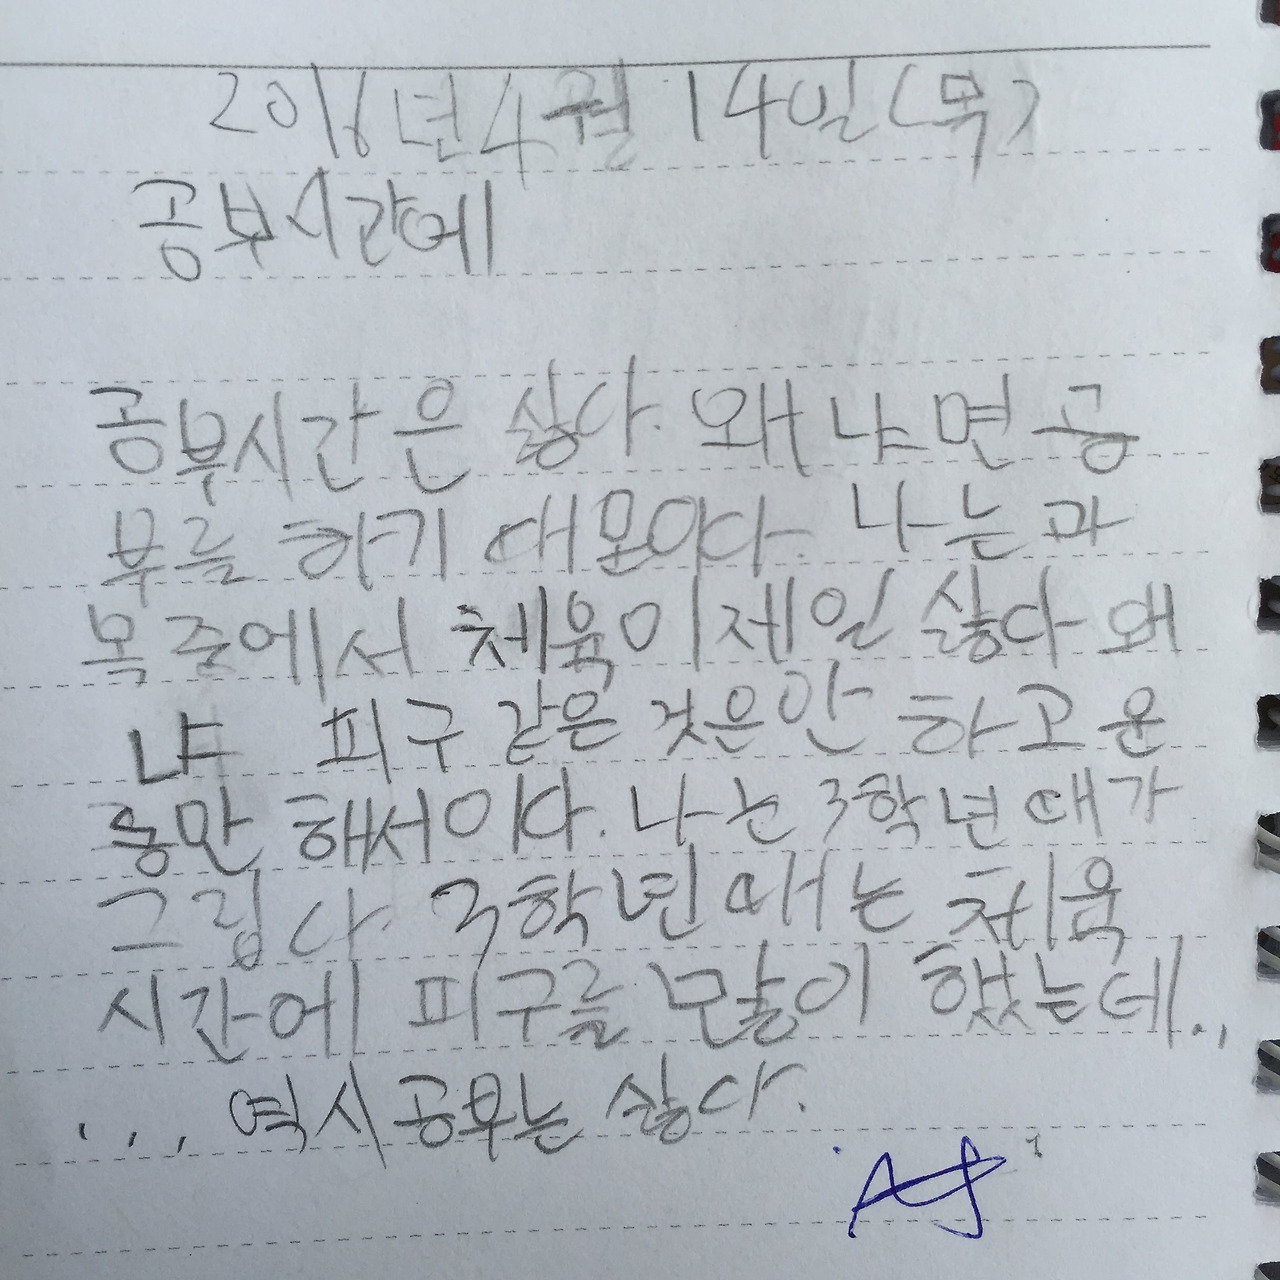 2016년 4월 14일(목)
공부시간에
공부시간은 싫다. 왜냐면 공
부를 하기 대문이다. 나는 과
목 중에서 체육이 제일 싫다 왜
냐 피구 같은 것은 안 하고 운
동만 해서이다. 나는 3학년 때가
그립다. 3학년 때는 체육
시간에 피구를 많이 했는데..,
. , . , 역시 공부는 싫다.